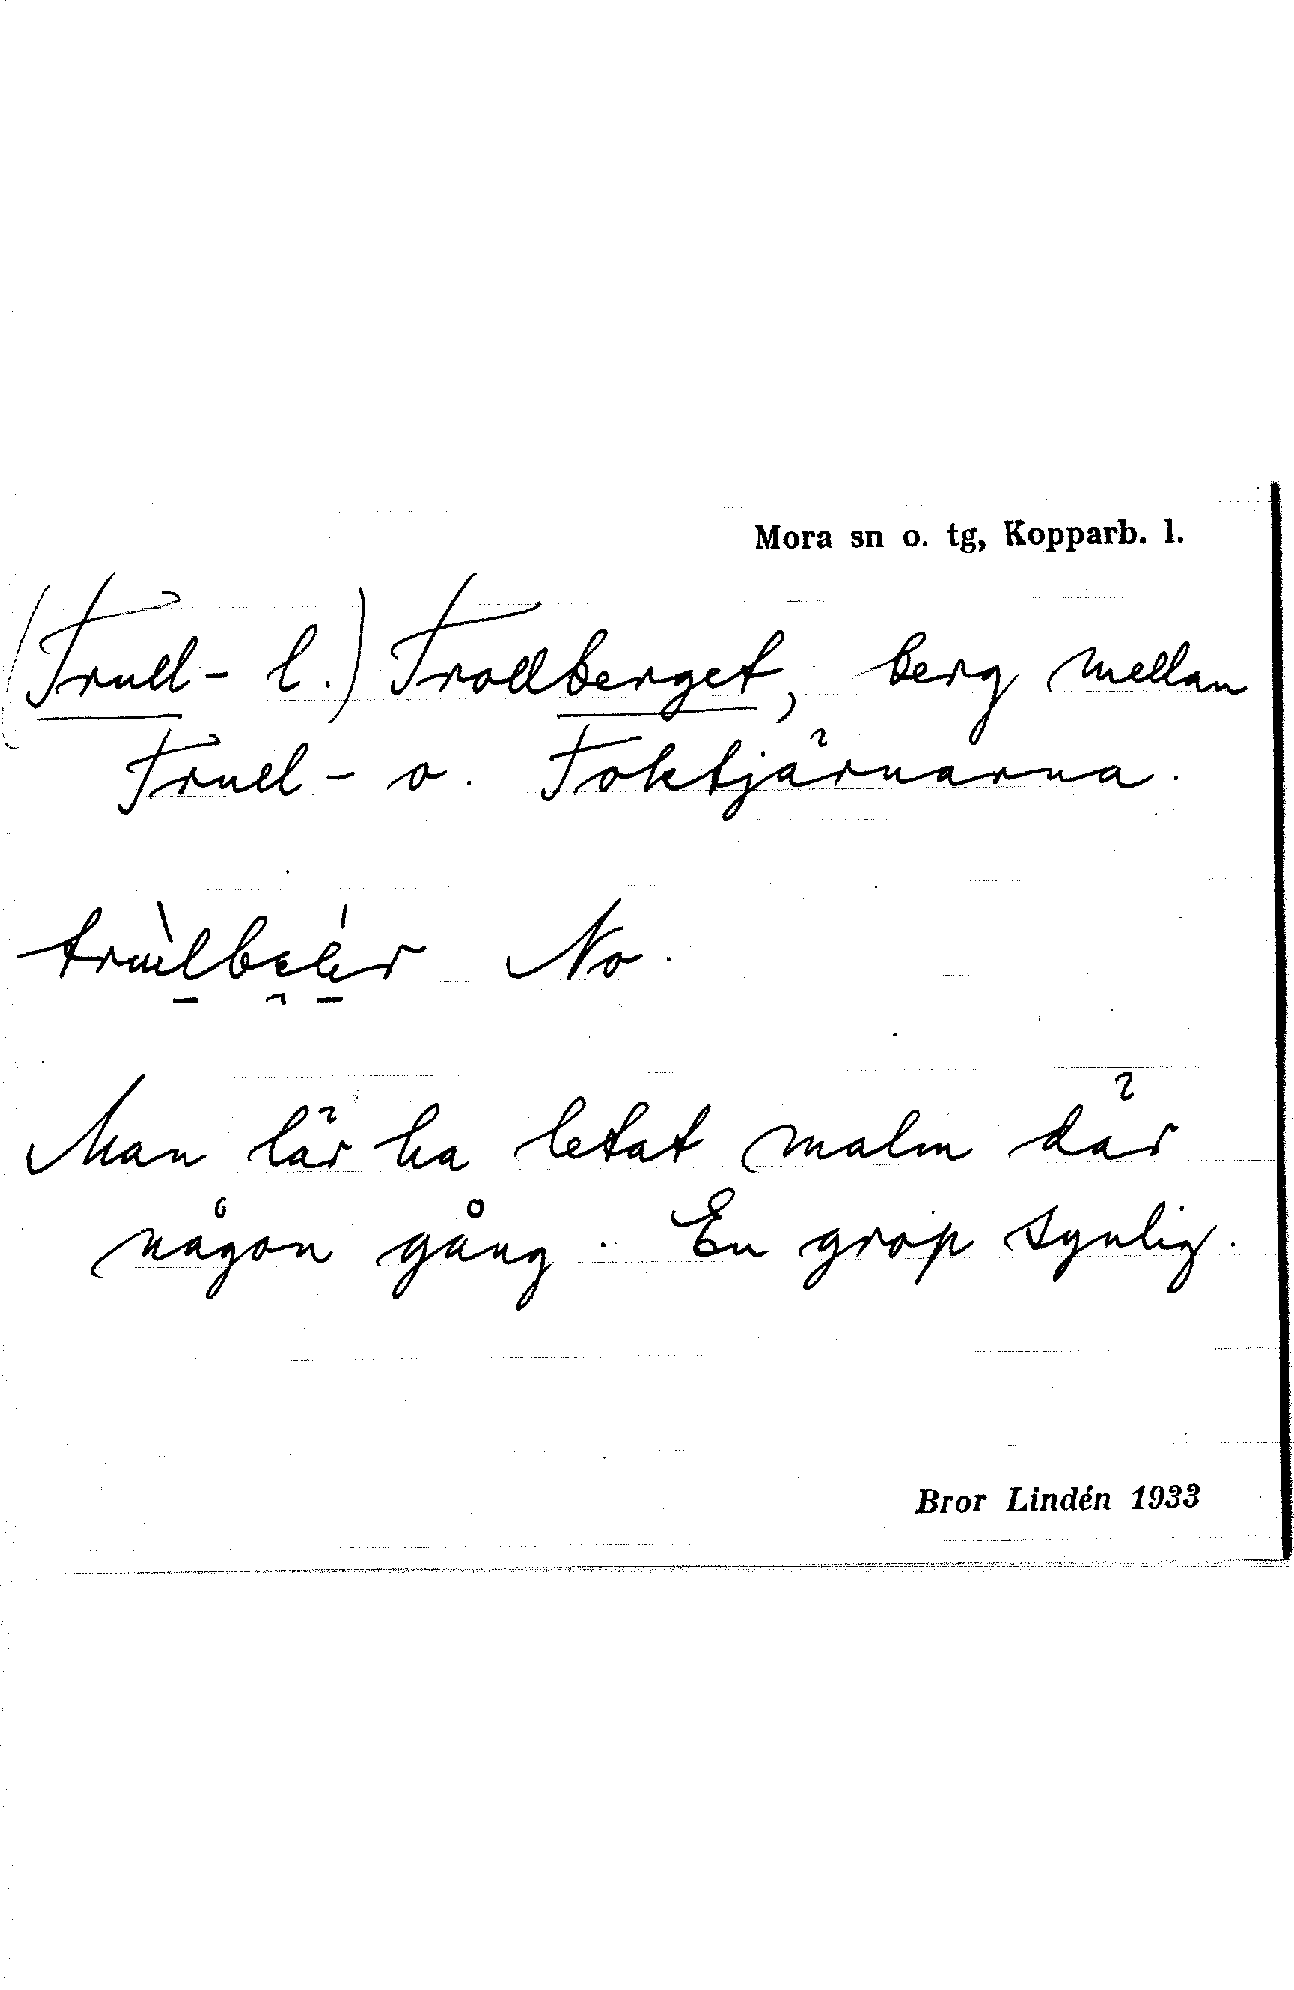 Mora sn o. tg, Kopparb. l.
(Trull- l.) Trollberget, berg mellan
Trull- o. Toktjärnarna.
No.
Man lär ha letat malm där
någon gång. En grop synlig.
Bror Lindén 1933